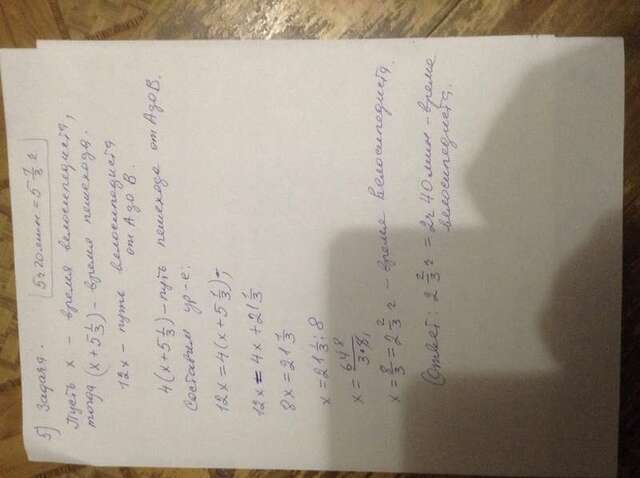 5) Задача. 5ч 20 мин = 5 1/3 ч
Пусть x - время велосипедиста,
тогда (x + 5 1/3) - время пешехода.
12x - путь велосипедиста
от А до В.
4(x + 5 1/3) - путь пешехода от А до В.
Составим ур-е:
12x = 4(x + 5 1/3),
12x = 4x + 21 1/3
8x = 21 1/3
x = 21 1/3 : 8
x = 64 8/3·8,
x = 8/3 = 2 2/3 ч - время велосипедиста.
Ответ: 2 2/3 ч = 2ч 40 мин - время
велосипедиста.